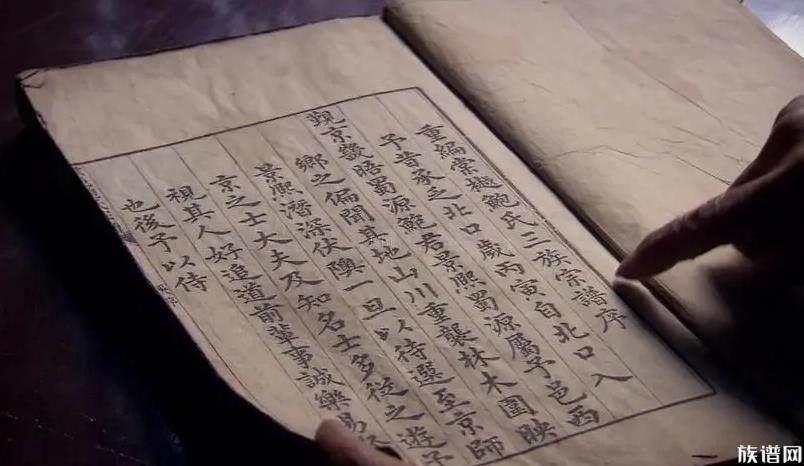 重編棠樾鮑氏三族宗譜序
予昔承乏北口歲丙寅自北口入
覲京畿晤蜀源鮑君景熙蜀源屬予邑西
鄉之偏聞其地山川重襲林木圜映
景熙潛深伏隩一旦以待選至京師
京之士大夫及知名士多從之遊予
視其人好追道前輩事誠樂易
也後予以侍
族谱网